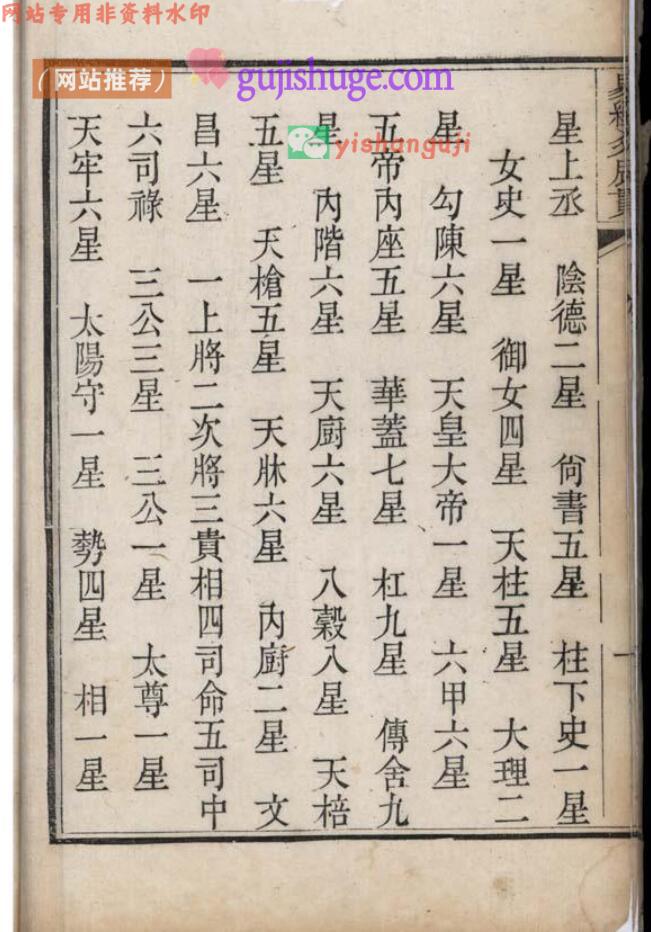 网站专用非资料水印
（网站推荐）
gujishuge.com
yishanguji
星上丞 陰德二星 尙書五星 柱下史一星
女史一星 御女四星 天柱五星 大理二
星 勾陳六星 天皇大帝一星 六甲六星
五帝內座五星 華蓋七星 杠九星 傳舍九
星 內階六星 天厨六星 八糓八星 天棓
五星 天槍五星 天牀六星 內厨二星 文
昌六星 一上將二次將三貴相四司命五司中
六司祿 三公三星 三公一星 太尊一星
天牢六星 太陽守一星 勢四星 相一星